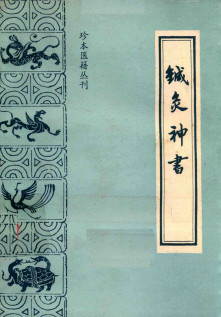 珍本医籍丛刊
鍼灸神書